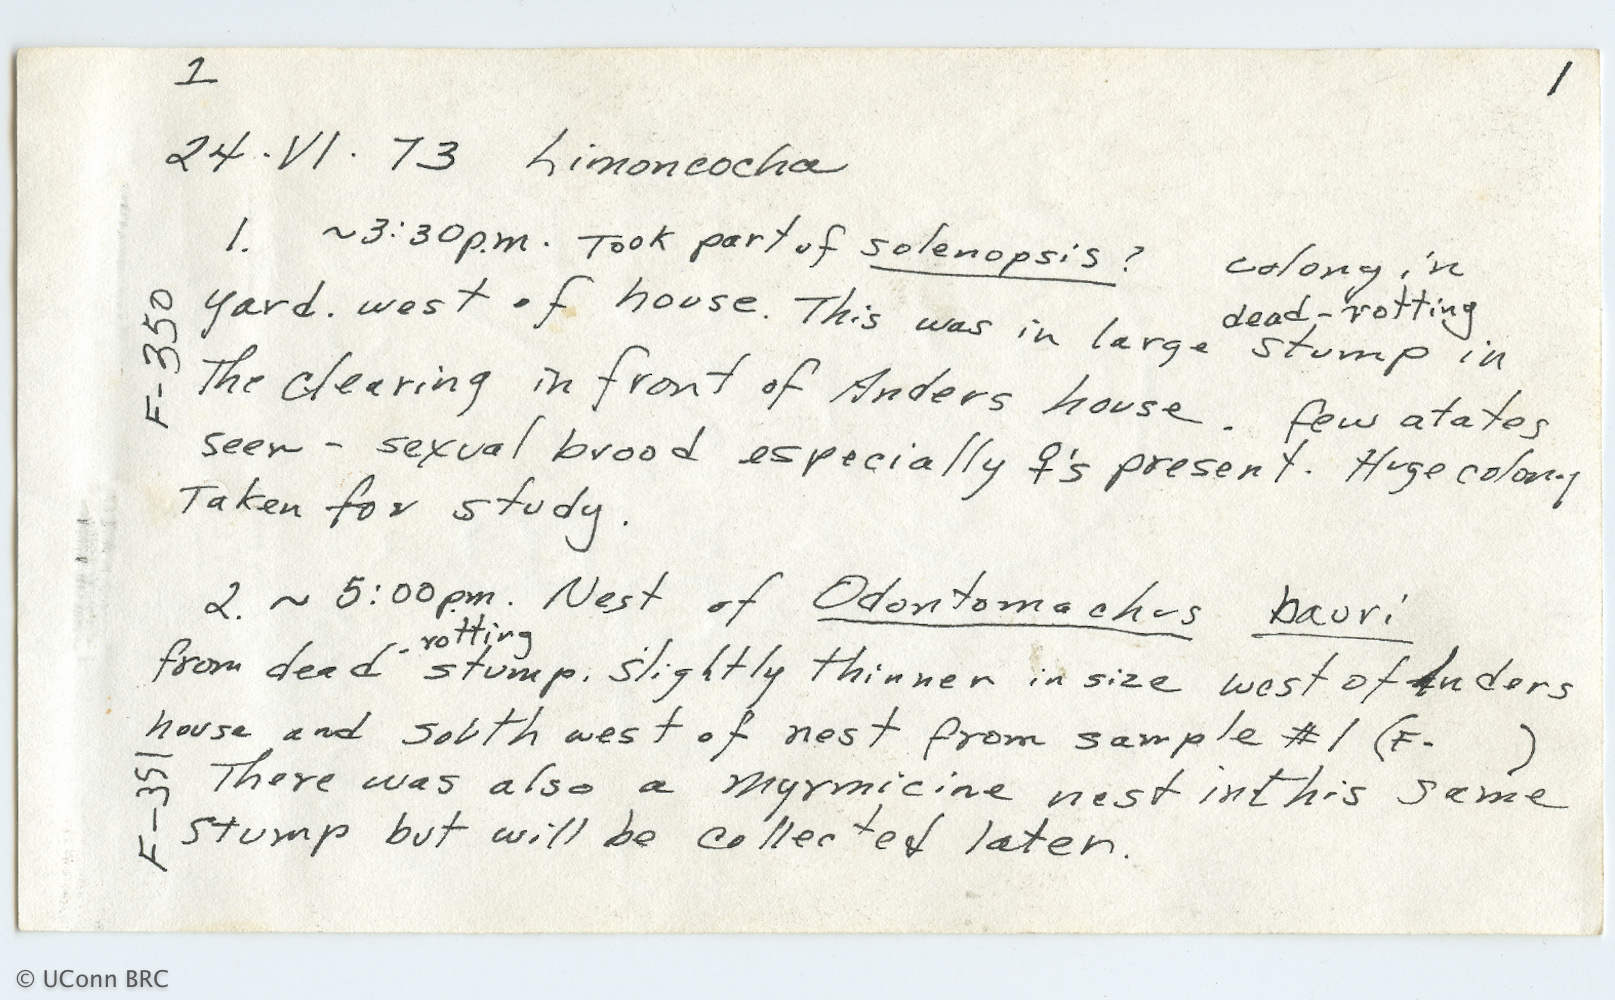 1 1
24·VI·73 Limoncocha
1. ~3:30p.m. Took part of solenopsis? colony in
yard. west of house. This was in large dead-rotting stump in
The clearing in front of Anders house. few alates
seen - sexual brood especially ♀'s present. Huge colony
Taken for study.
F-350
2. ~ 5:00p.m. Nest of Odontomachus bauri
from dead-rotting stump. slightly thinner in size west of Anders
house and south west of nest from sample #1 (F- )
There was also a myrmicine nest in this same
stump but will be collected later.
F-351
© UConn BRC